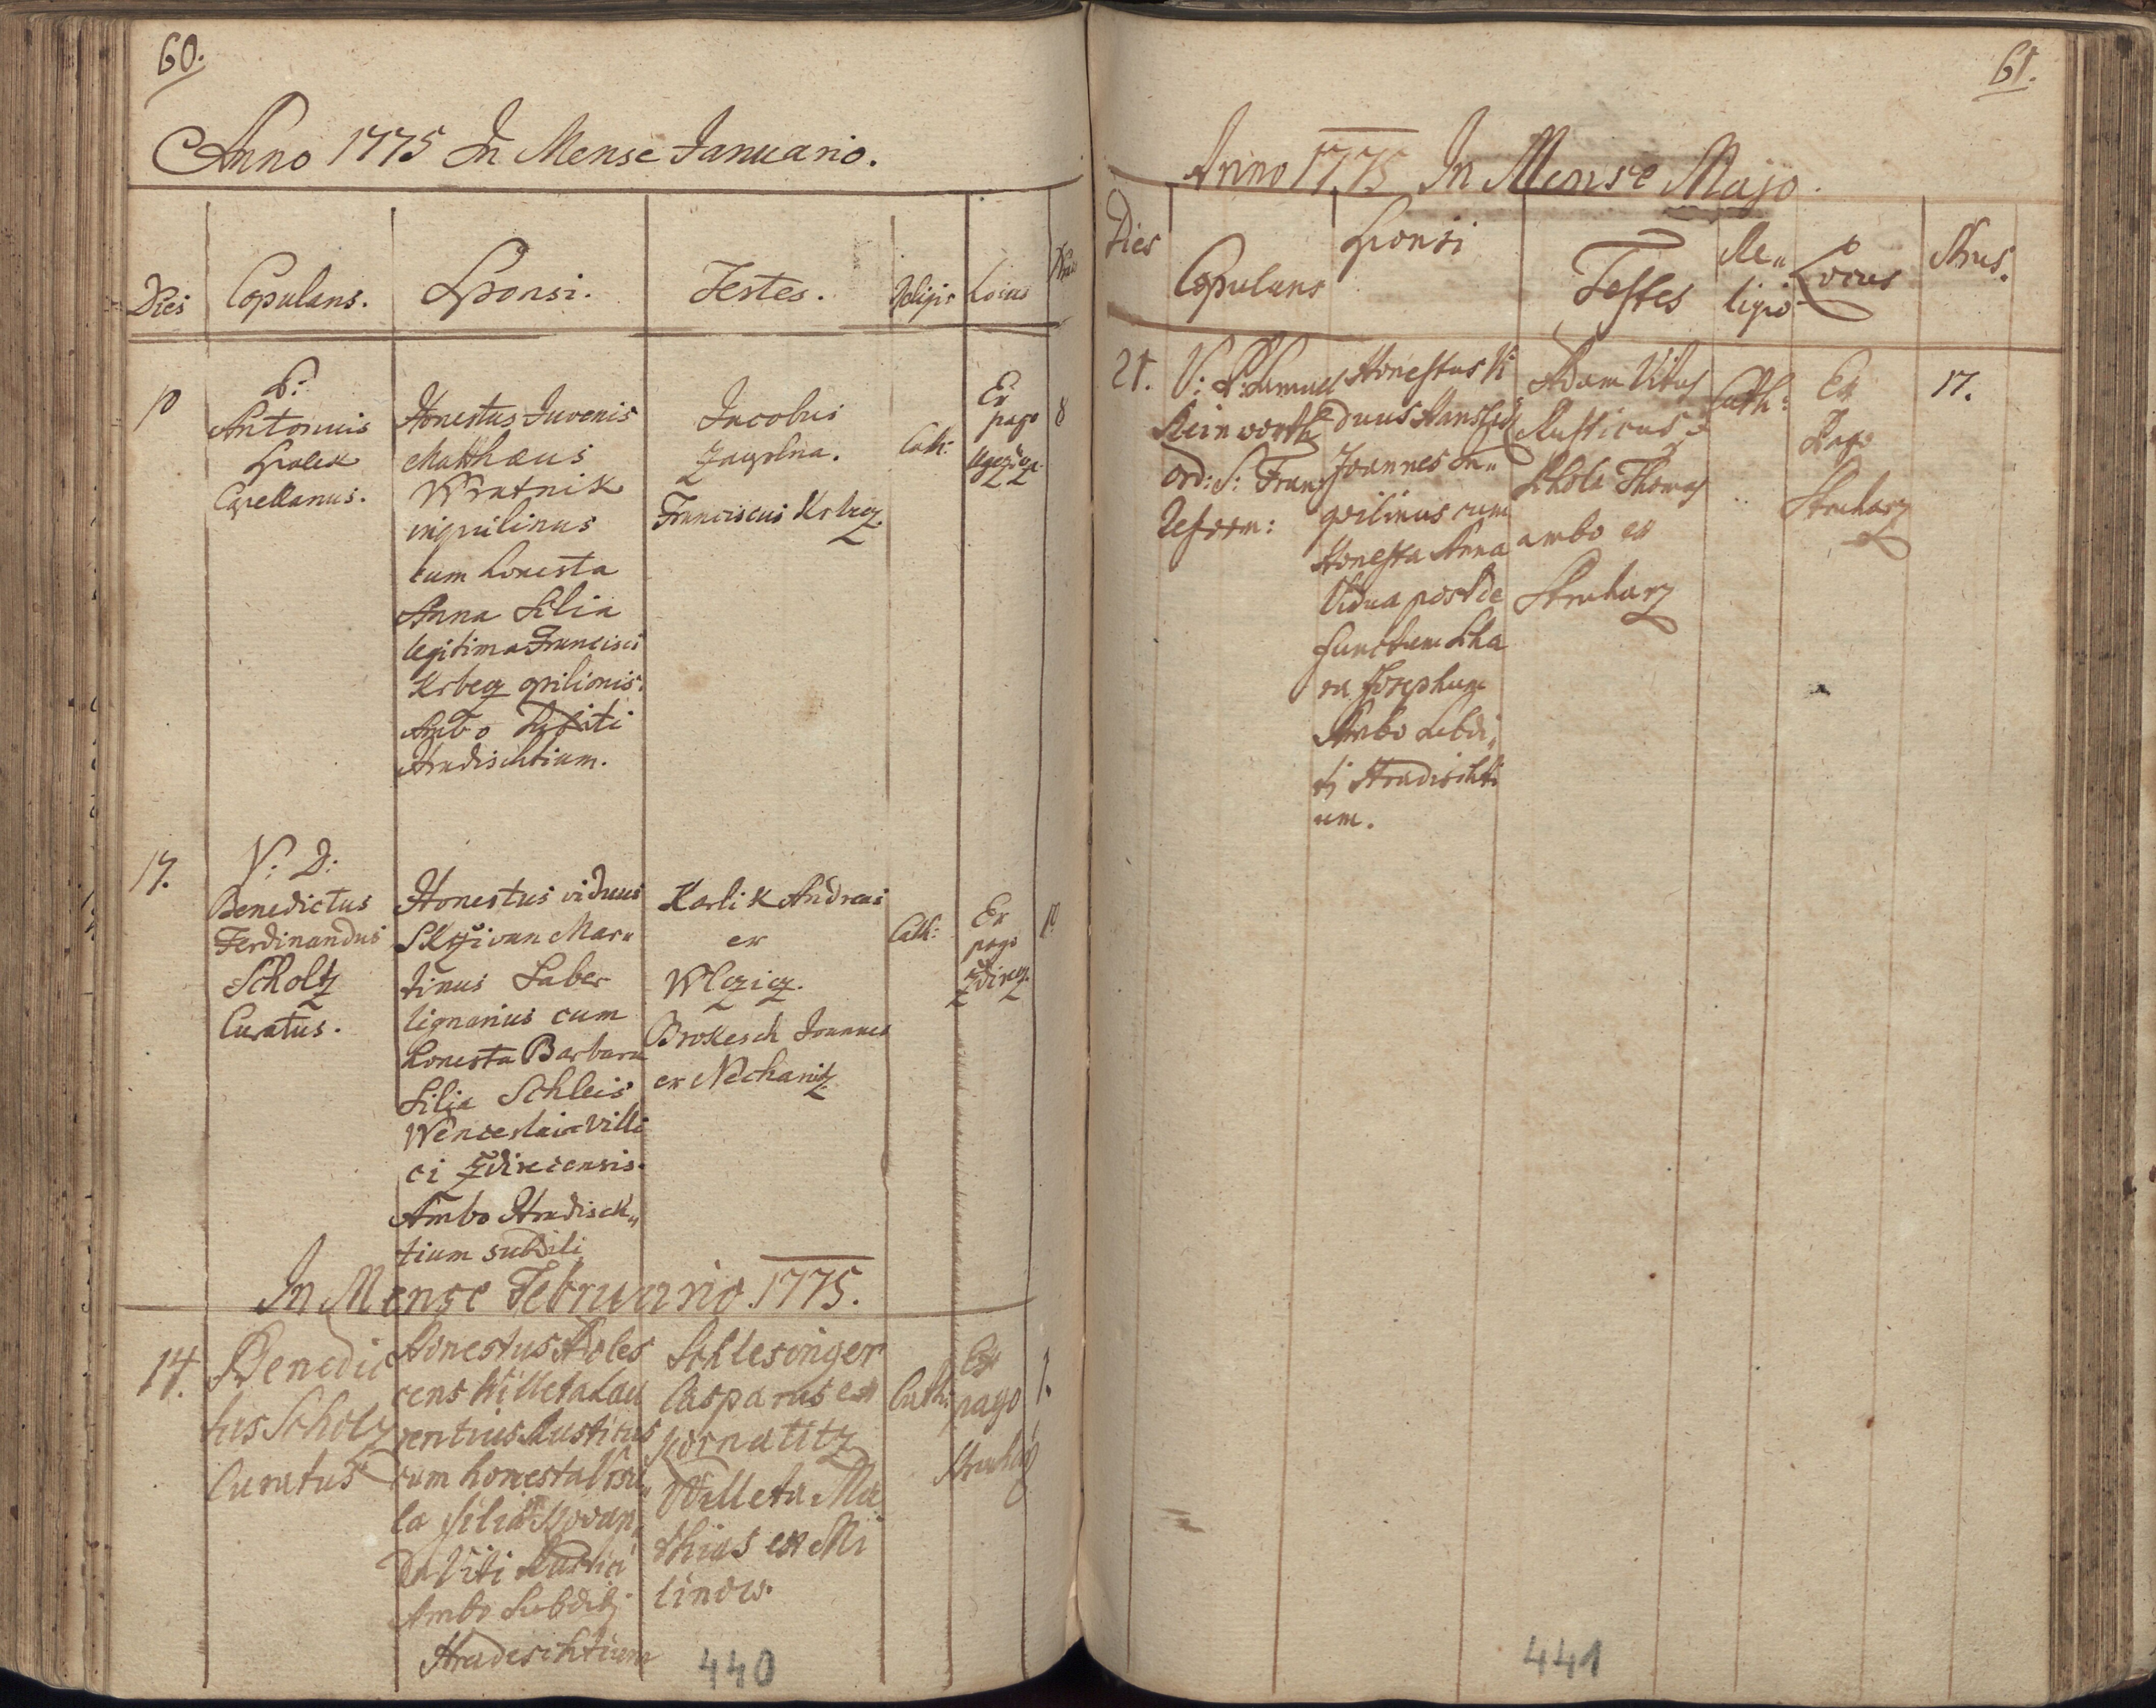 60.
Anno 1775 In Mense Januario.
Dies
Copulans.
Sponsi.
Testes.
Religio
Locus
10
P:
Antonius
Capellanus.
Honestus Juvenis
Matthæus
Wratnik
inquilinus
cum honesta
Anna Filia
legitima Francisci
Krbecz opilionis.
Ambo Subditi
Hradischtium.
Jacobus
Zagolna.
Franciscus Krbecz.
Cath:
Ex
pago
8
17.
V: D:
Benedictus
Ferdinandus
Scholtz
Curatus.
Honestus viduus
Skrziwan Mar„
tinus Faber
lignarius cum
honesta Barbara
Filia Schleis
Wenceslai Villi
ci Zdirecensis.
Ambo Hradisch„
tium subditi
Karlik Andreas
ex
Wlczicz.
Brokesch Joannes
ex Nechanitz
Cath:
Ex
pago
Zdirecz.
10
In Mense Februario 1775.
14.
Benedic
tus Scholz
Curatus
Honestus Adoles
cens Willeta Lau
rentius Rusticus
cum honesta Ursu„
la filia Kowan„
da Viti Rustici
Ambo Subditj
Hradeschtium
Schlesinger
Casparus ex
Kornatitz
Willeta Ma
thias ex Mi
linow.
Cath:
Ex
pago
Struharz
1.
440
61.
Anno 1775 In Mense Majo.
Dies
Copulans
Sponsi
Testes
Re„
ligio
Locus
Nrus.
21.
V: P: Samuel
Reinworth
Ord: S: Fran:
Reform:
Honestus Vi
duus
Joannes in„
quilinus cum
Honesta Anna
Vidua post de
functum
Josephum
Ambo subdi„
tj Hradischti
um.
Adam Vitus
Rusticus &
Thomas
ambo ex
Struharz
Cath:
Ex
Pago
Struharz
17.
441